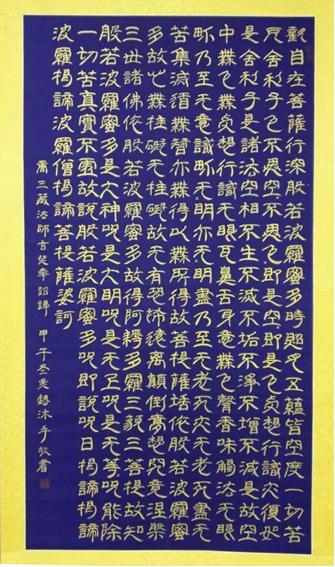 觀自在菩薩行深般若波羅蜜多時照見五蘊皆空度一切苦
厄舍利子色不異空空不異色色即是空空即是色受想行識亦復如
是舍利子是諸法空相不生不滅不垢不淨不增不減是故空
中無色無受想行識无眼耳鼻舌身意無色聲香味觸法无眼
界乃至无意識界无无明亦无无明盡乃至无老死亦无老死盡无
苦集滅道無智亦無得以無所得故菩提薩埵依般若波羅蜜
多故心無罣礙无罣礙故无有恐怖遠離顛倒夢想究竟涅槃
三世諸佛依般若波羅蜜多故得阿耨多羅三藐三菩提故知
般若波羅蜜多是大神咒是大明咒是无上咒是无等等咒能除
一切苦真實不虛故說般若波羅蜜多咒即說咒曰揭諦揭諦
波羅揭諦波羅僧揭諦菩提薩婆訶
三藏法師玄奘奉詔譯 甲午冬 沐手敬書